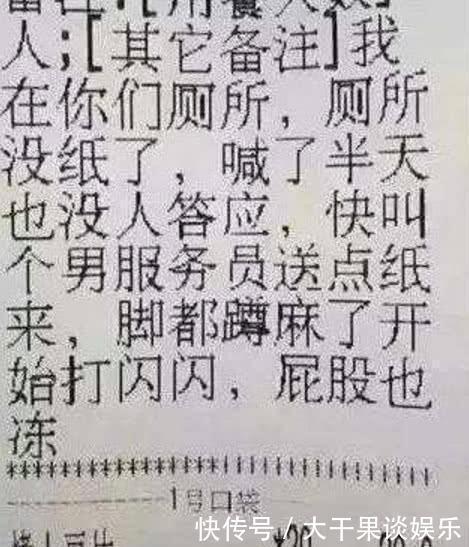 人；[其它备注]我
在你们厕所，厕所
没纸了，喊了半天
也没人答应，快叫
个男服务员送点纸
来，脚都蹲麻了开
始打闪闪，屁股也
冻
1号口袋
快传号／大干果谈娱乐